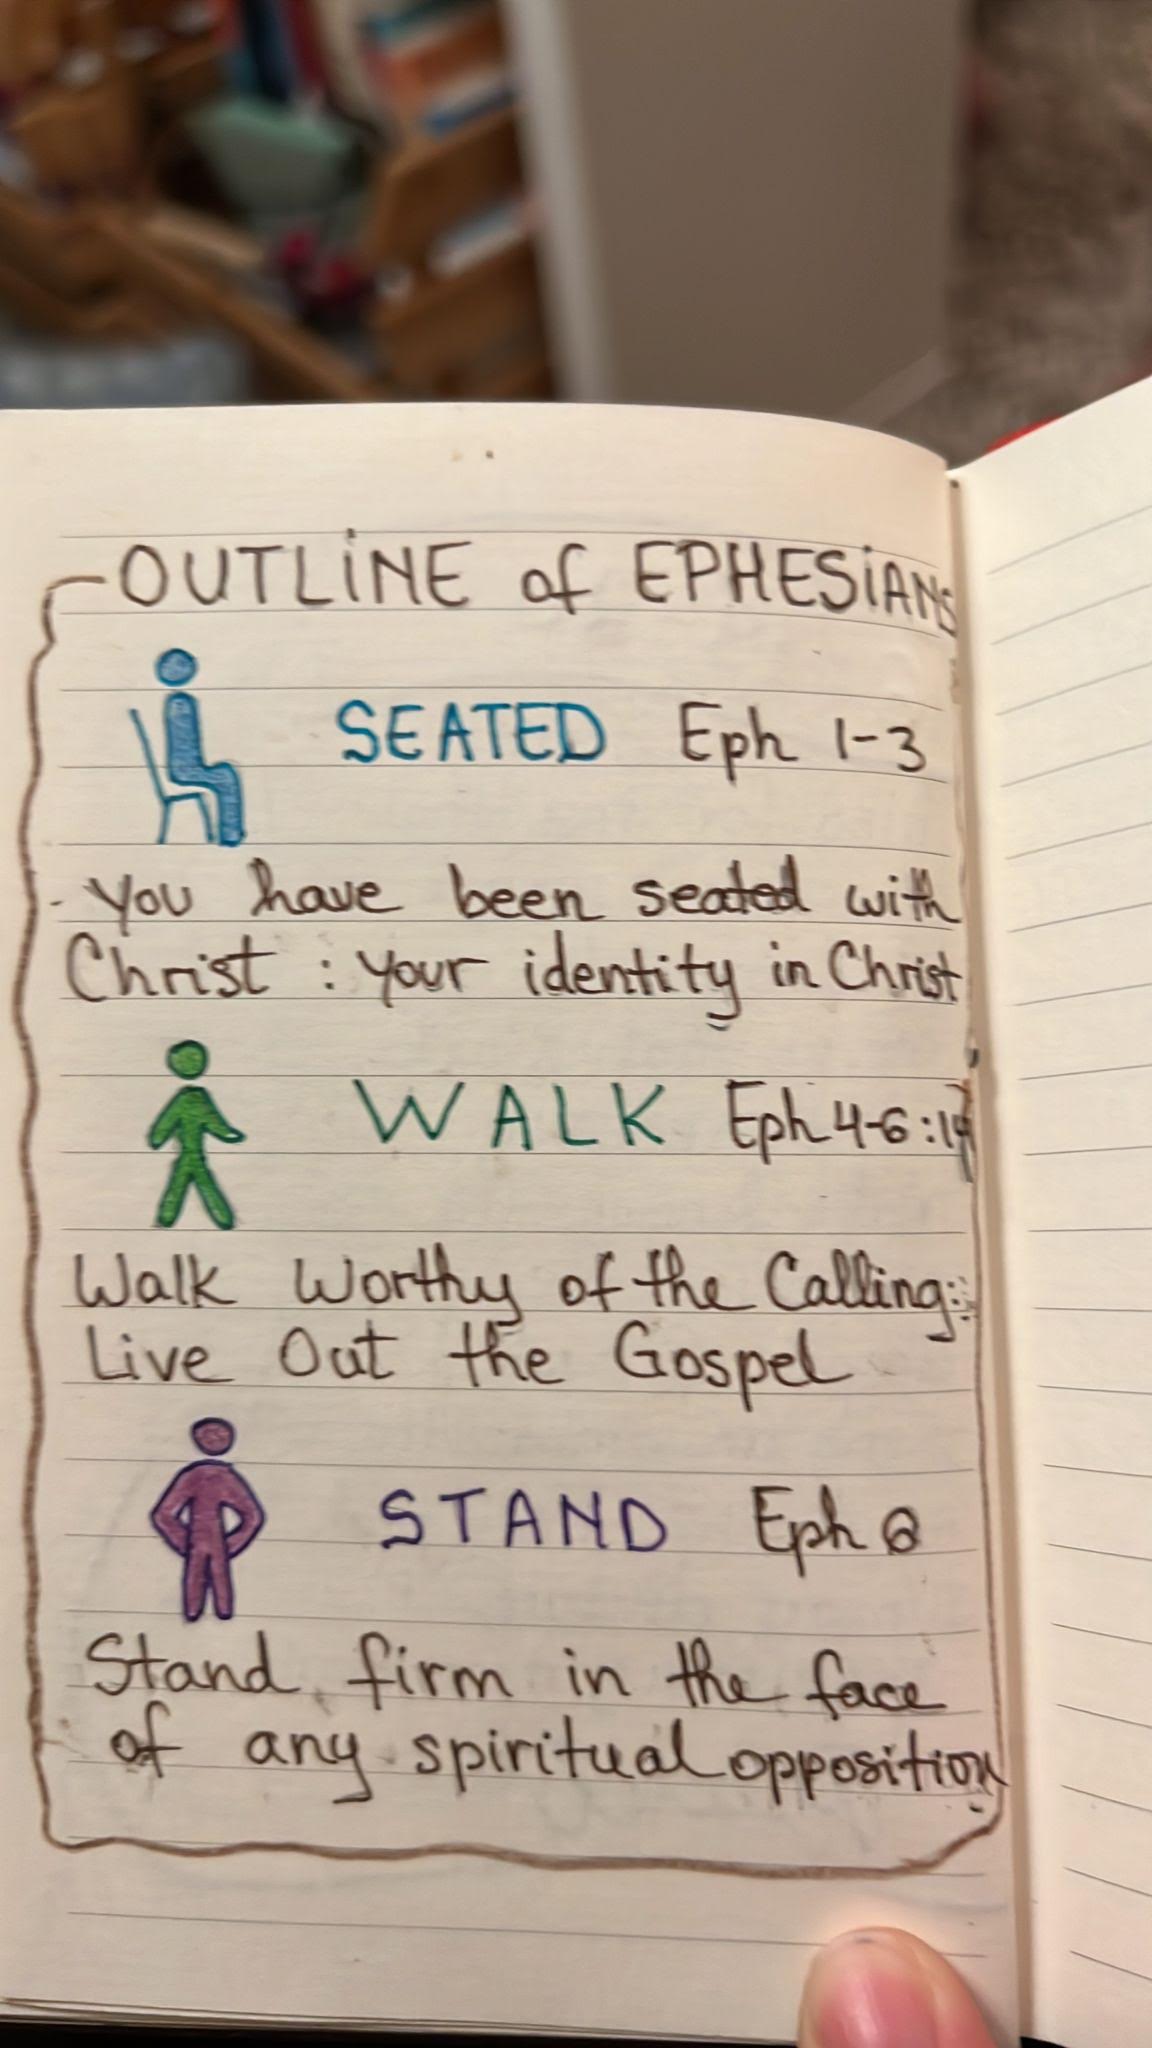 OUTLiNE of EPHESiANS
SEATED Eph 1-3
You have been seated with
Christ : Your identity in Christ
WALK Eph 4-6
Walk Worthy of the Calling:
Live Out the Gospel
STAND Eph 6
Stand firm in the face
of any spiritual opposition